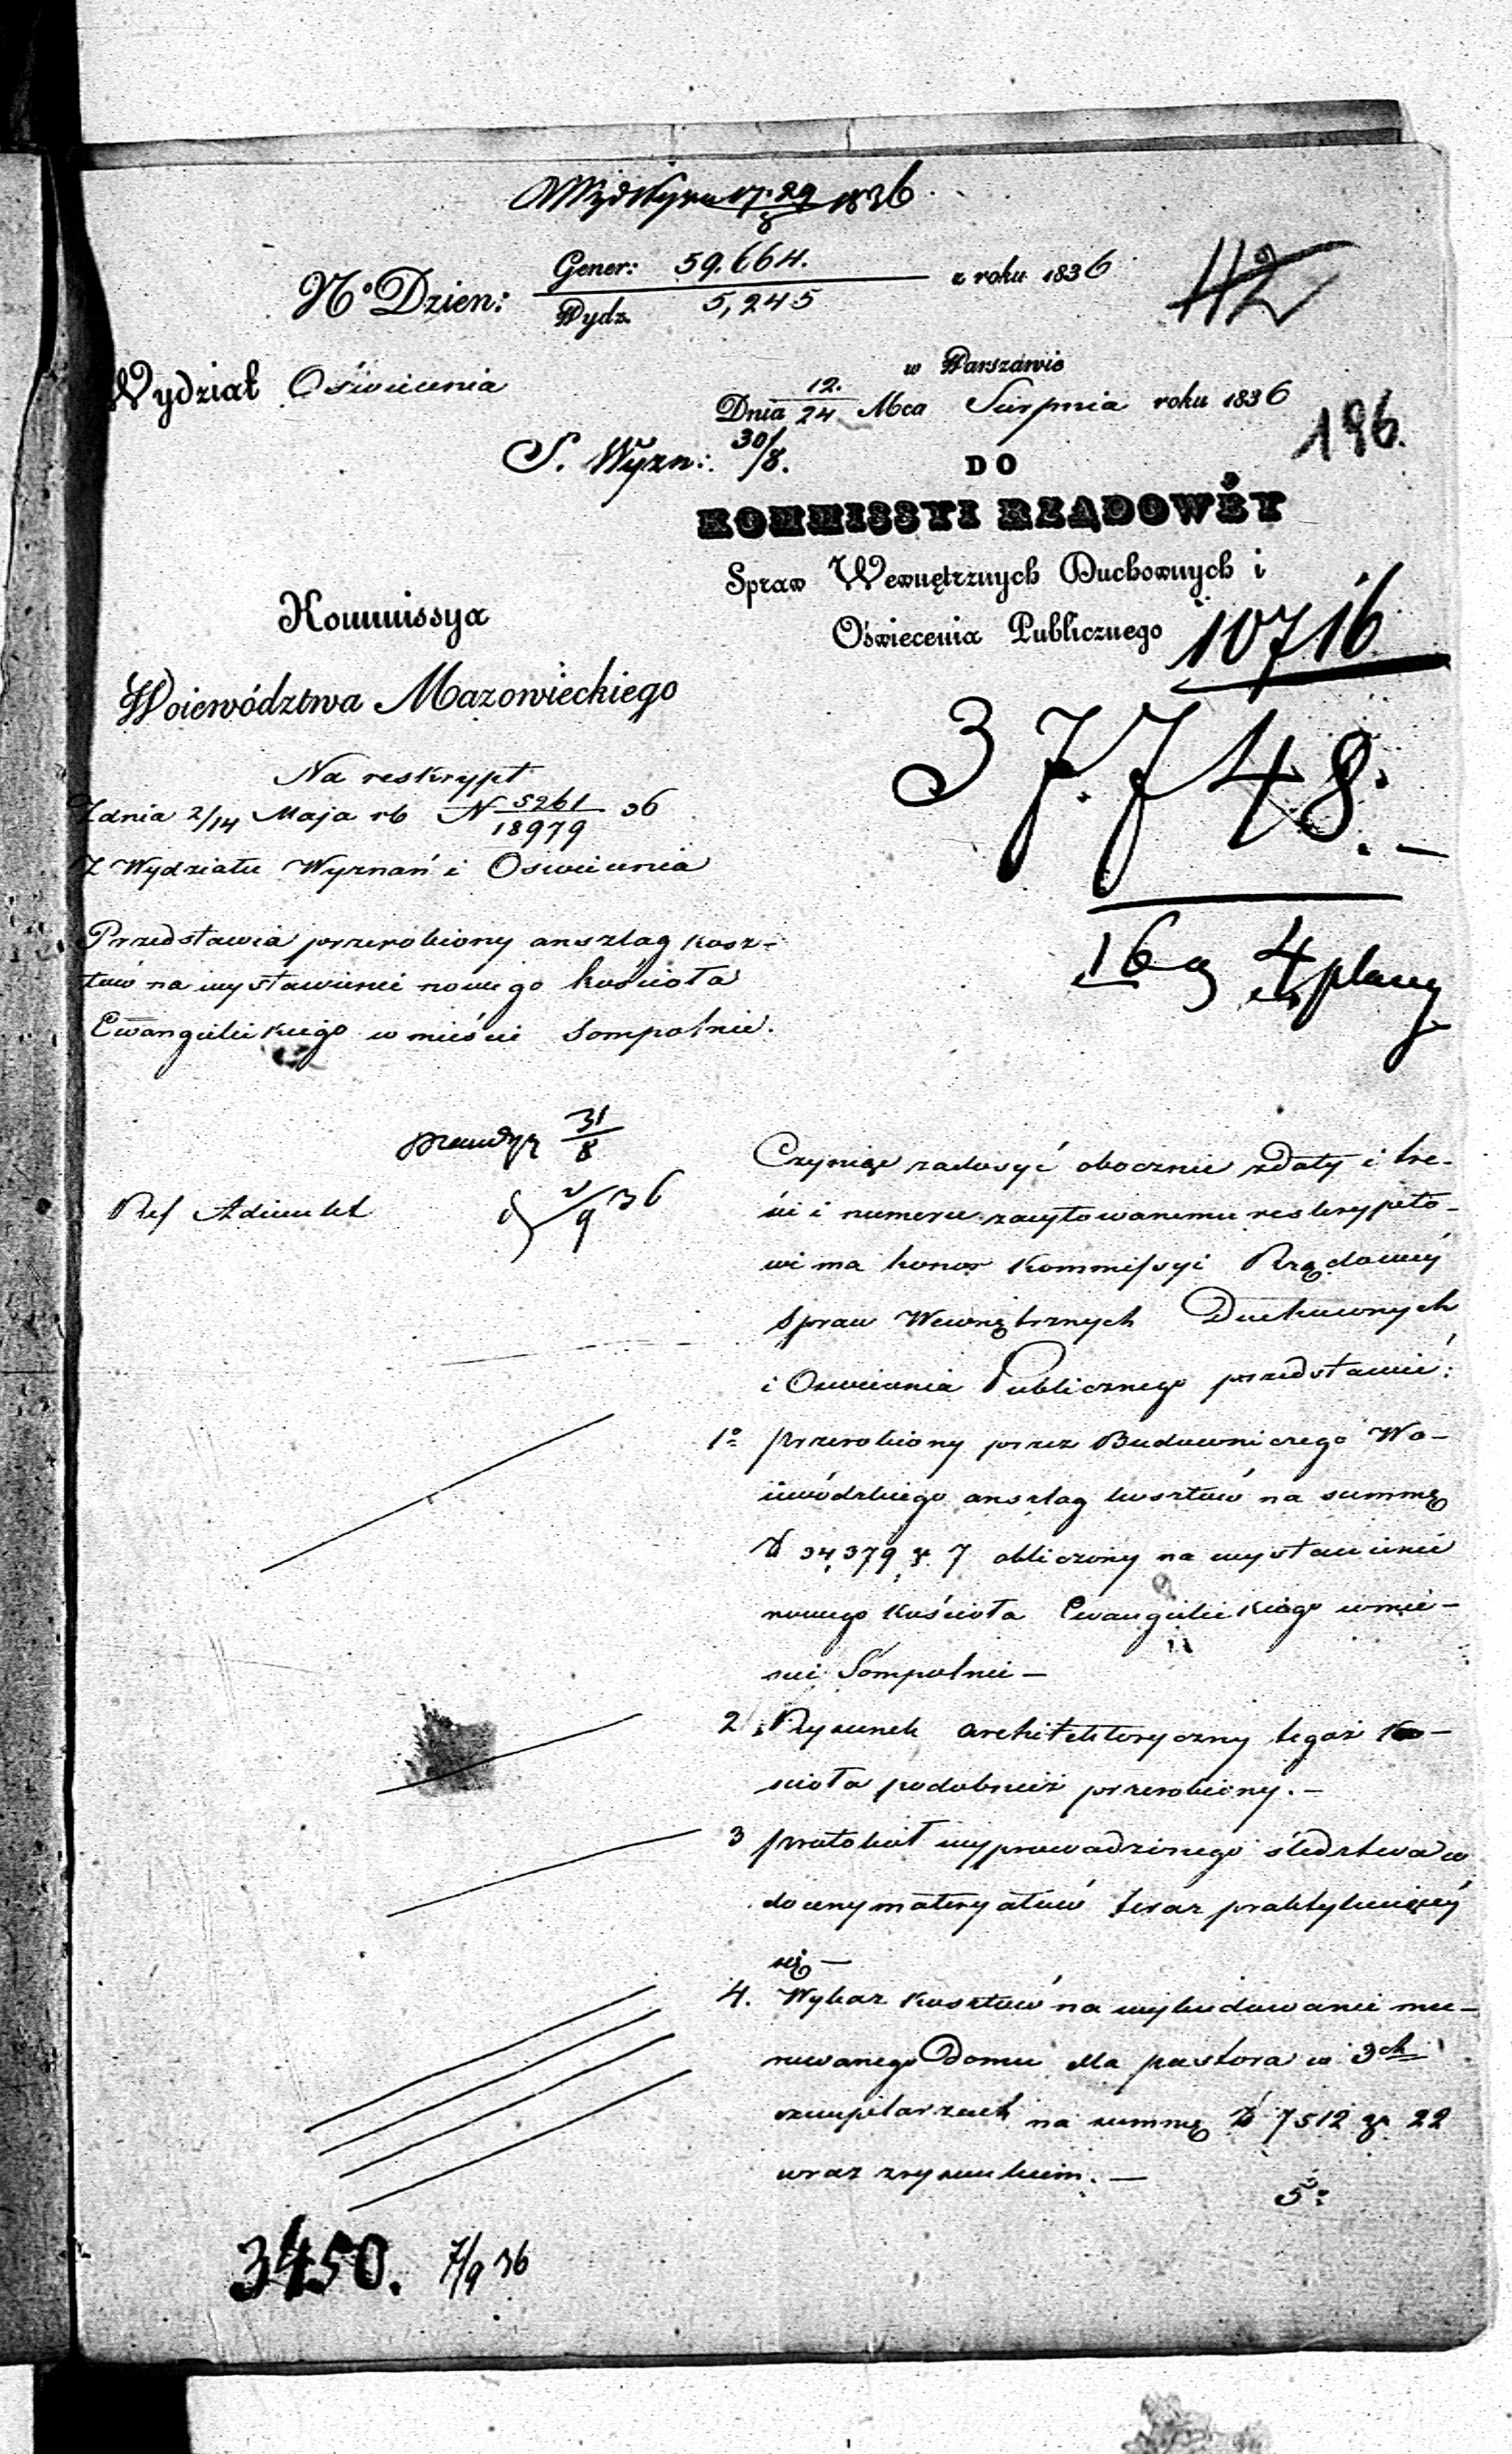 17/29 8 1836
No Dzien: Gener: 59.664. z roku 1836
Wydz. 5,245
42
Wydział Oświecenia
w Warszawie
Dnia 12./24 Mca Sierpnia roku 1836
196.
S. Wyzn: 30/8.
DO
KOMMISSYI RZĄDOWÉY
Spraw Wewnętrznych Duchownych i
Oświecenia Publicznego
10716
Kommissya
Woiewództwa Mazowieckiego
37.748.
Na reskrypt
Zdnia 2/14 Maja rb N 5261/18979 36
Z Wydziału Wyznań i Oswiecenia
16 4 plany
Przedstawia przerobiony anszlag kosz-
tów na wystawienie nowego kościoła
Ewangelickiego w mieście Sompolnie.
31/8
Ref
2/9 36
Czyniąc zadosyć obocznie zdaty i tre-
ści i numeru zacytowanemu reskrypto-
wi ma honor Kommissyi Rządowéy
Spraw Wewnętrznych Duchownych
i Oswiecenia Publicznego przedstawić:
1o przerobiony przez Budowniczego Wo-
iewódzkiego anszlag kosztów na summę
Zł 34,379 gr. 7 obliczony na wystawienie
nowego Kościoła Ewangelickiego w mie-
scie Sompolnie —
2. Rysunek architektoryczny tegoż Ko-
scioła podobnież przerobiony. —
3 protokół wyprowadzonego śledztwa w
do ceny materyałów teraz praktykuiącéy
się —
4. Wykaz kosztów na wybudowanie mu-
rowanego Domu dla pastora w 3ch
exemplarzach na summę Zł 7512 gr 22
wraz zrysunkiem. —
5o:
3450. 7/9 36